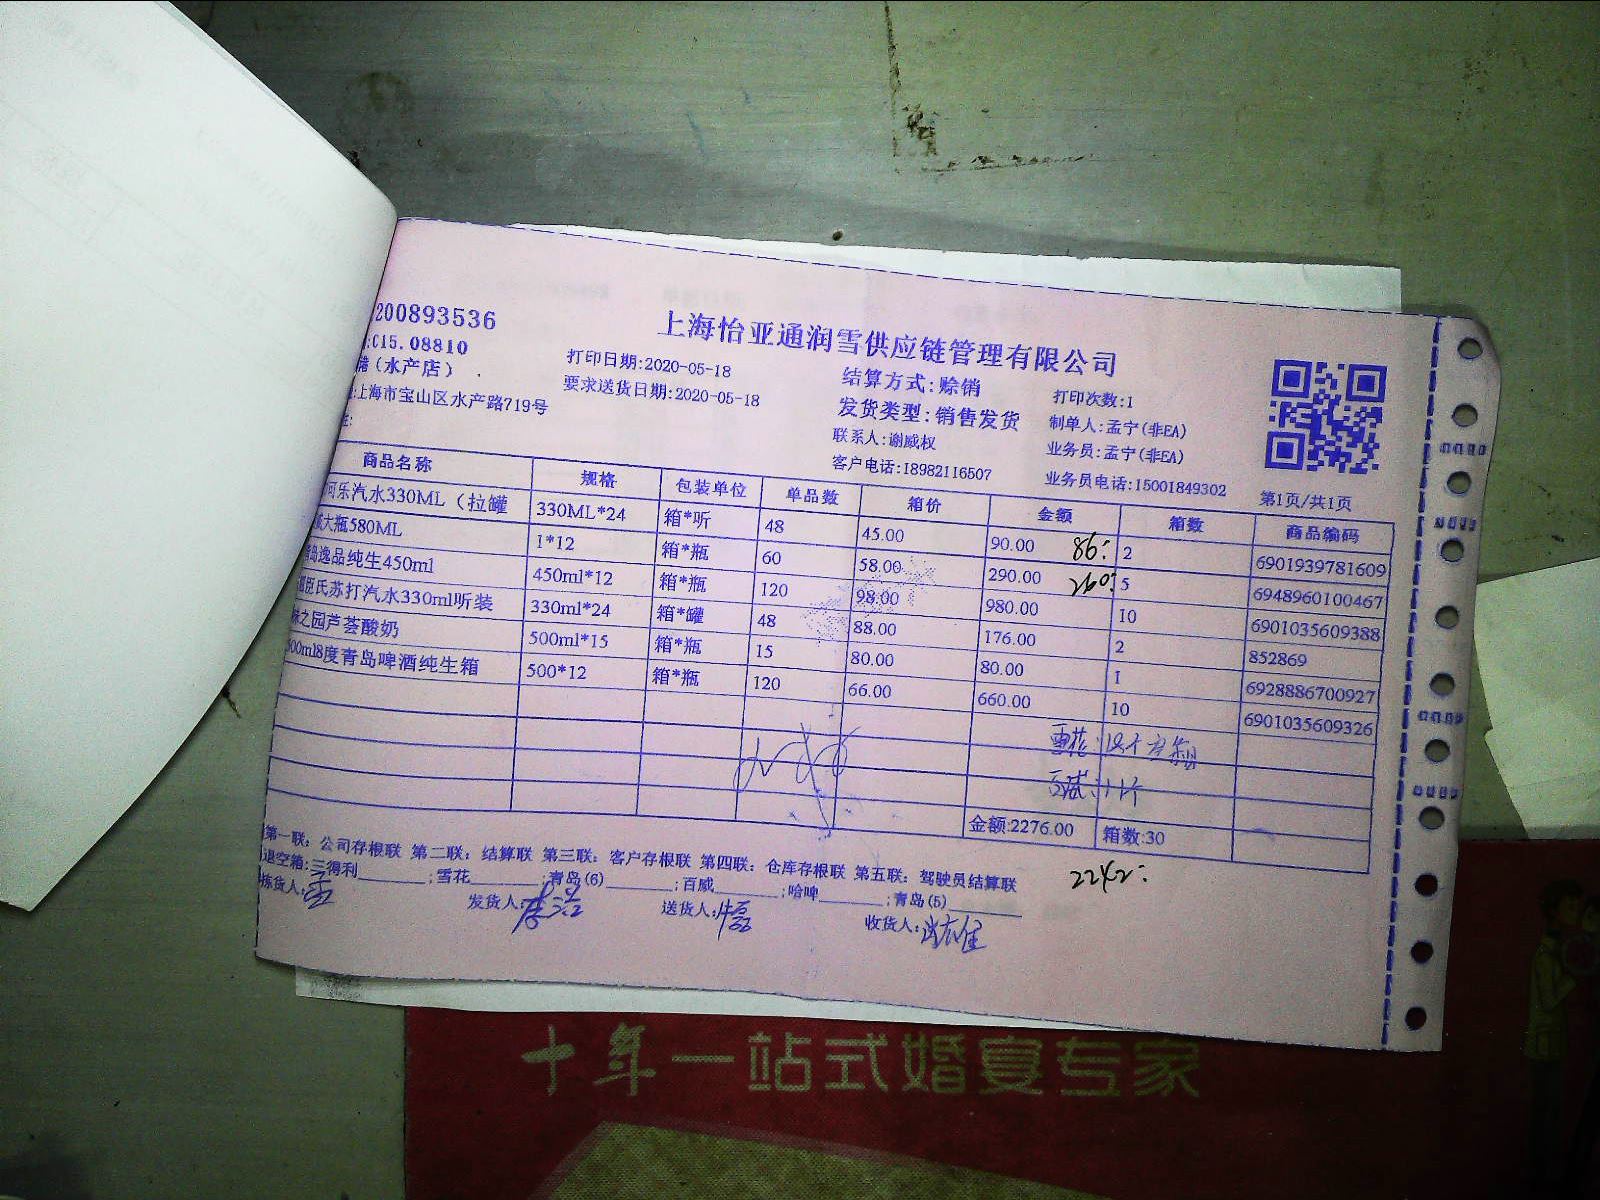 200893536
上海怡亚通润雪供应链管理有限公司
:C15.08810
打印日期:2020-05-18
结算方式:赊销
打印次数:1
(水产店)
要求送货日期:2020-05-18
发货类型:销售发货
制单人:孟宁(非EA)
:上海市宝山区水产路719号
联系人:谢威权
业务员:孟宁(非EA)
客户电话:18982116507
业务员电话:15001849302
第1页/共1页
商品名称 规格 包装单位 单品数 箱价 金额 箱数 商品编码
可乐汽水330ML(拉罐 330ML*24 箱*听 48 45.00 90.00 86: 2 6901939781609
大瓶580ML 1*12 箱*瓶 60 58.00 290.00 260: 5 6948960100467
青岛逸品纯生450ml 450ml*12 箱*瓶 120 98.00 980.00 10 6901035609388
臣氏苏打汽水330ml听装 330ml*24 箱*罐 48 88.00 176.00 2 852869
味之园芦荟酸奶 500ml*15 箱*瓶 15 80.00 80.00 1 6928886700927
500ml8度青岛啤酒纯生箱 500*12 箱*瓶 120 66.00 660.00 10 6901035609326
雪花:
百威:
金额:2276.00 箱数:30
2242:
第一联: 公司存根联 第二联: 结算联 第三联: 客户存根联 第四联: 仓库存根联 第五联: 驾驶员结算联
退空箱:三得利________;雪花________;青岛(6)________;百威________;哈啤________;青岛(5)________
拣货人: 发货人: 送货人:牛磊 收货人:
十年一站式婚宴专家